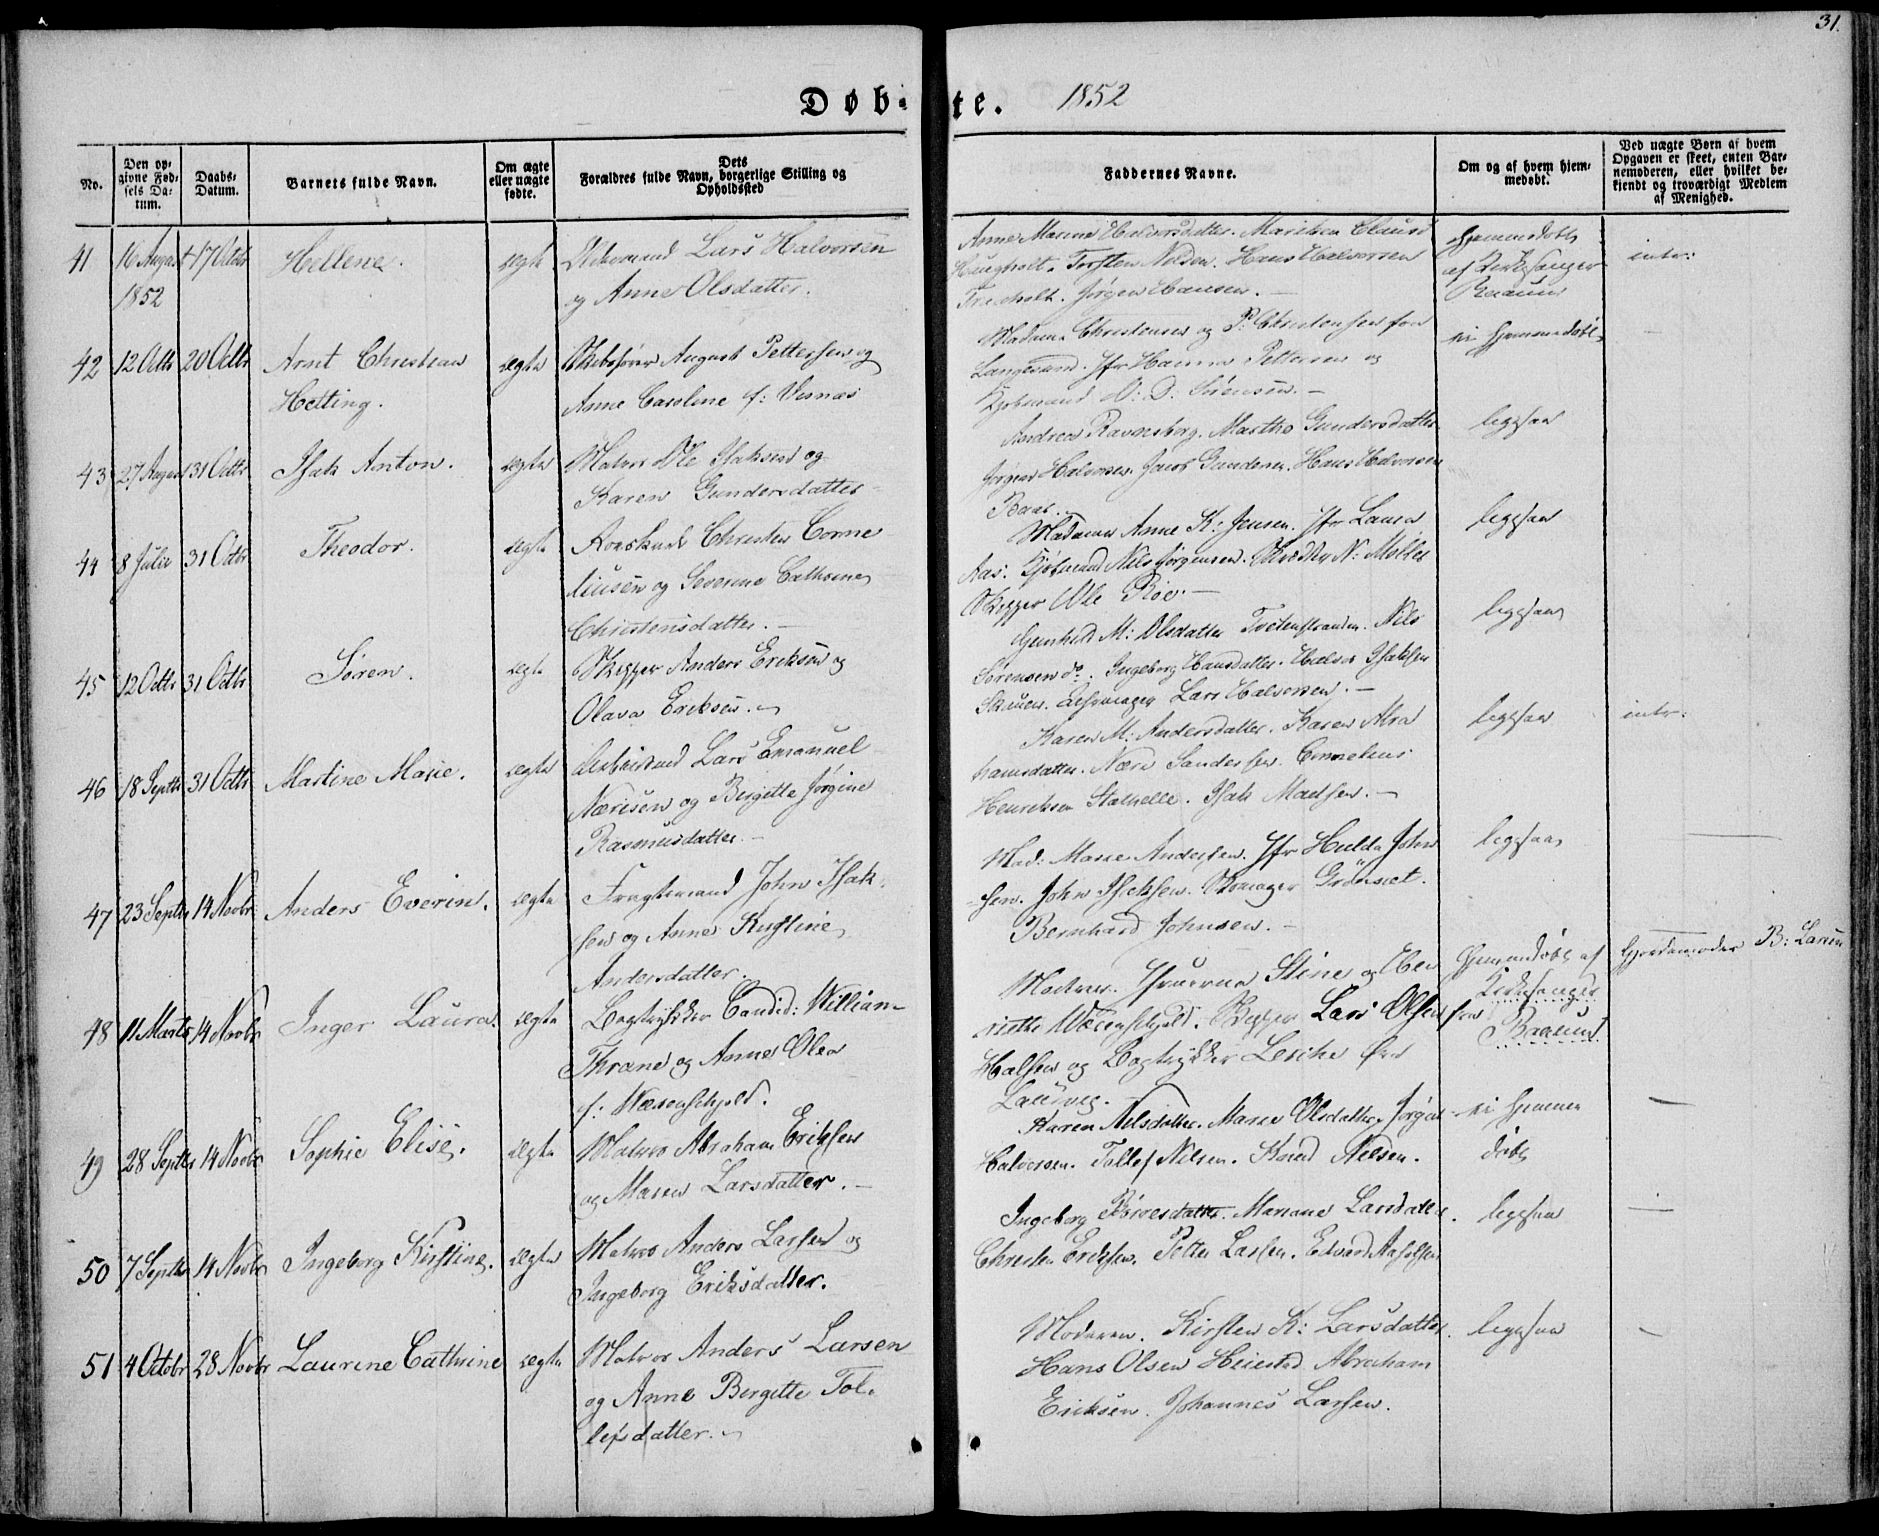 31.
Døb-te. 1852
No.
Den op-
givne Fød-
sels Da-
tum.
Daabs-
Datum.
Barnets fulde Navn.
Om ægte
eller uægte
fødte.
Dets
Forældres fulde Navn, borgerlige Stilling og
Opholdssted
Faddernes Navne.
Om og af hvem hjem-
medøbt.
Ved uægte Børn af hvem
Opgaven er skeet, enten Bar-
nemoderen, eller hvilket be-
kiendt og troværdigt Medlem
af Menighed.
41 16 August 17 Octbr Hellene. ægte Lars Halvorsen
1852 og Anne Olsdatter.
Anne Marine Halvorsdatter. Claus
Torsten Hans Halvorsen
Jørgen Hansen. —
Hjemmedøbt
af Kirkesanger
Raaum
intr:
42 12 Octbr 20 Octbr Arnt Christian ægte Skibsfører August Pettersen og
Hetting. Anne Caroline f: Vesnæs
Madame Christensen og P. Christensen fra
Langesund. Jfr Hanna Pettersen og
Kjøbmand Sørensen. —
ei hjemmedøbt
43 27 August 31 Octbr Isak Anton. ægte Matros Ole Isaksen og
Karen Gundersdatter
Andrea Ravnsborg. Marthe Gundersdatter
Jørgen Halvorsen. Jacob Gundersen. Hans Halvorsen
ligesaa
44 8 Julii 31 Octbr Theodor. ægte Christen Corne
liusen og Severine Cathrine
Christensdatter. —
Madame Anne K: Jensen. Jfr Laura
Aas. Kjøbmand Nils Jørgensen. N: Møller
Skipper Ole Roe. —
ligesaa
45 12 Octbr 31 Octbr Søren. ægte Skipper Anders Eriksen og
Olava Eriksen.
Gunhild M: Olsdatter Tvetenstranden. Nils
Sørensen do. Ingeborg Hansdatter. Isaksen
Lars Halvorsen. —
ligesaa
46 18 Septbr 31 Octbr Martine Marie. ægte Arbeidsmd Lars Emanuel
Næresen og Birgitte Jørgine
Rasmusdatter. —
Karen M: Andersdatter. Karen Abra
hamsdatter. Nære Sandersen. Cornelius
Henriksen Stathelle. Isak Madsen. —
ligesaa
intr:
47 23 Septbr 14 Novbr Anders Everin. ægte Fragtemand John Isak-
sen og Anne Kirstine
Andersdatter.
Mad: Marie Andersen. Jfr Hulda John
sen. John Isaksen. Grönset.
Bernhard Johnsen. —
ligesaa
48 11 Marts 14 Novbr Inger Laura. ægte Bogtrykker Candid: William
Thrane og Anne Olea
f: Wærenskjold.
Modren. Stine og Oben
riette Wærenskjold. Skipper Lars Olsen fra
Halsen og Bogtrykker Lesche fra
Laurvig.
Hjemmedøbt af
Kirkesanger
Raaum
Gjordemoder B: Larsen
49 28 Septbr 14 Novbr Sophie Elise. ægte Matros Abraham Eriksen
og Maren Larsdatter. —
Karen Nilsdatter. Marie Olsdatter. Jørgen
Halvorsen. Tollef Nilsen. Knud Nilsen.
ei hjemme
døbt
50 7 Septbr 14 Novbr Ingeborg Kirstine. ægte Matros Anders Larsen og
Ingeborg Eriksdatter.
Ingeborg Mariane Larsdatter.
Christen Eriksen. Petter Larsen. Edvard
ligesaa
51 4 Octobr 28 Novbr Laurine Cathrine ægte Matros Anders Larsen
og Anne Bergitte Tol-
lefsdatter.
Moderen. Kirsten K: Larsdatter.
Hans Olsen Heiestad Abraham
Eriksen. Johannes Larsen.
ligesaa